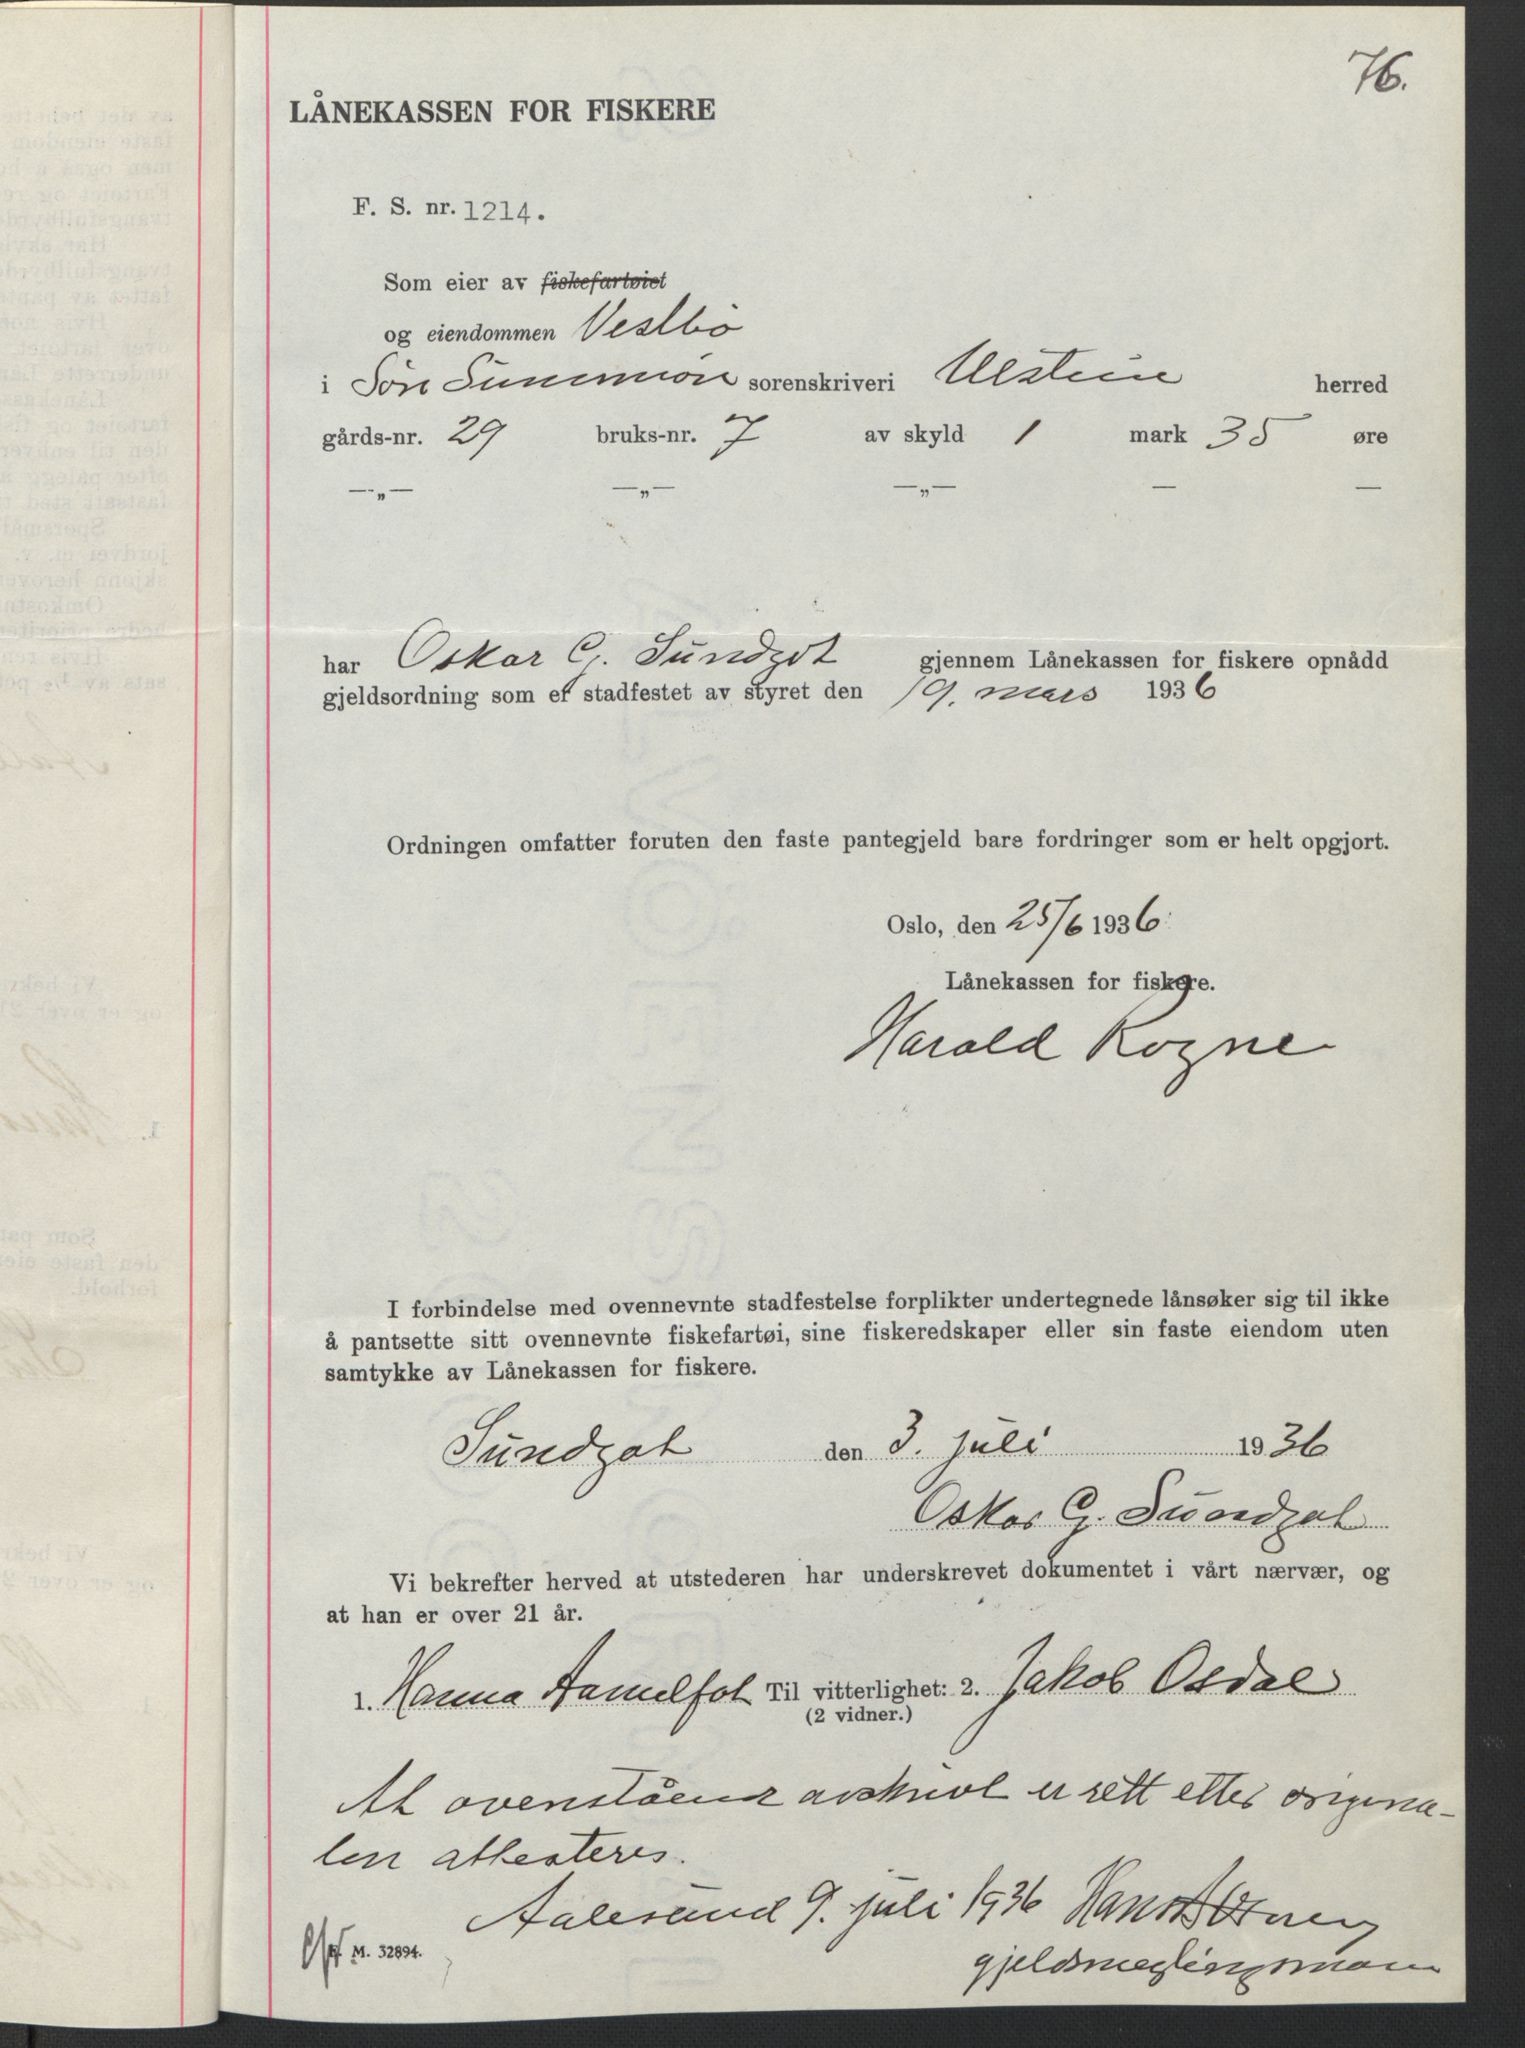 76.
LÅNEKASSEN FOR FISKERE
F. S. nr. 1214.
Som eier av fiskefartøiet
og eiendommen Vestbø
i Søre Sunnmøre sorenskriveri Ulstein herred
gårds-nr. 29 bruks-nr. 7 av skyld 1 mark 35 øre
—„— —„— —„— — —
har Oskar G. Sundgot gjennem Lånekassen for fiskere opnådd
gjeldsordning som er stadfestet av styret den 19. mars 1936
Ordningen omfatter foruten den faste pantegjeld bare fordringer som er helt opgjort.
Oslo, den 25/6 1936
Lånekassen for fiskere.
Harald Rogne
I forbindelse med ovennevnte stadfestelse forplikter undertegnede lånsøker sig til ikke
å pantsette sitt ovennevnte fiskefartøi, sine fiskeredskaper eller sin faste eiendom uten
samtykke av Lånekassen for fiskere.
Sundgot den 3. juli 1936
Oskar G. Sundgot
Vi bekrefter herved at utstederen har underskrevet dokumentet i vårt nærvær, og
at han er over 21 år.
1. Hanna Aamelfot Til vitterlighet: 2. Jakob Osdal
(2 vidner.)
At ovenstående avskrivt er rett etter origina-
len attesteres.
Aalesund 9. juli 1936 Hans
gjeldsmeglingsmann
M. 32894.